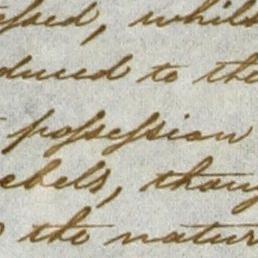 essed, whils
duced to the
possession
ebels, thoug
the natur